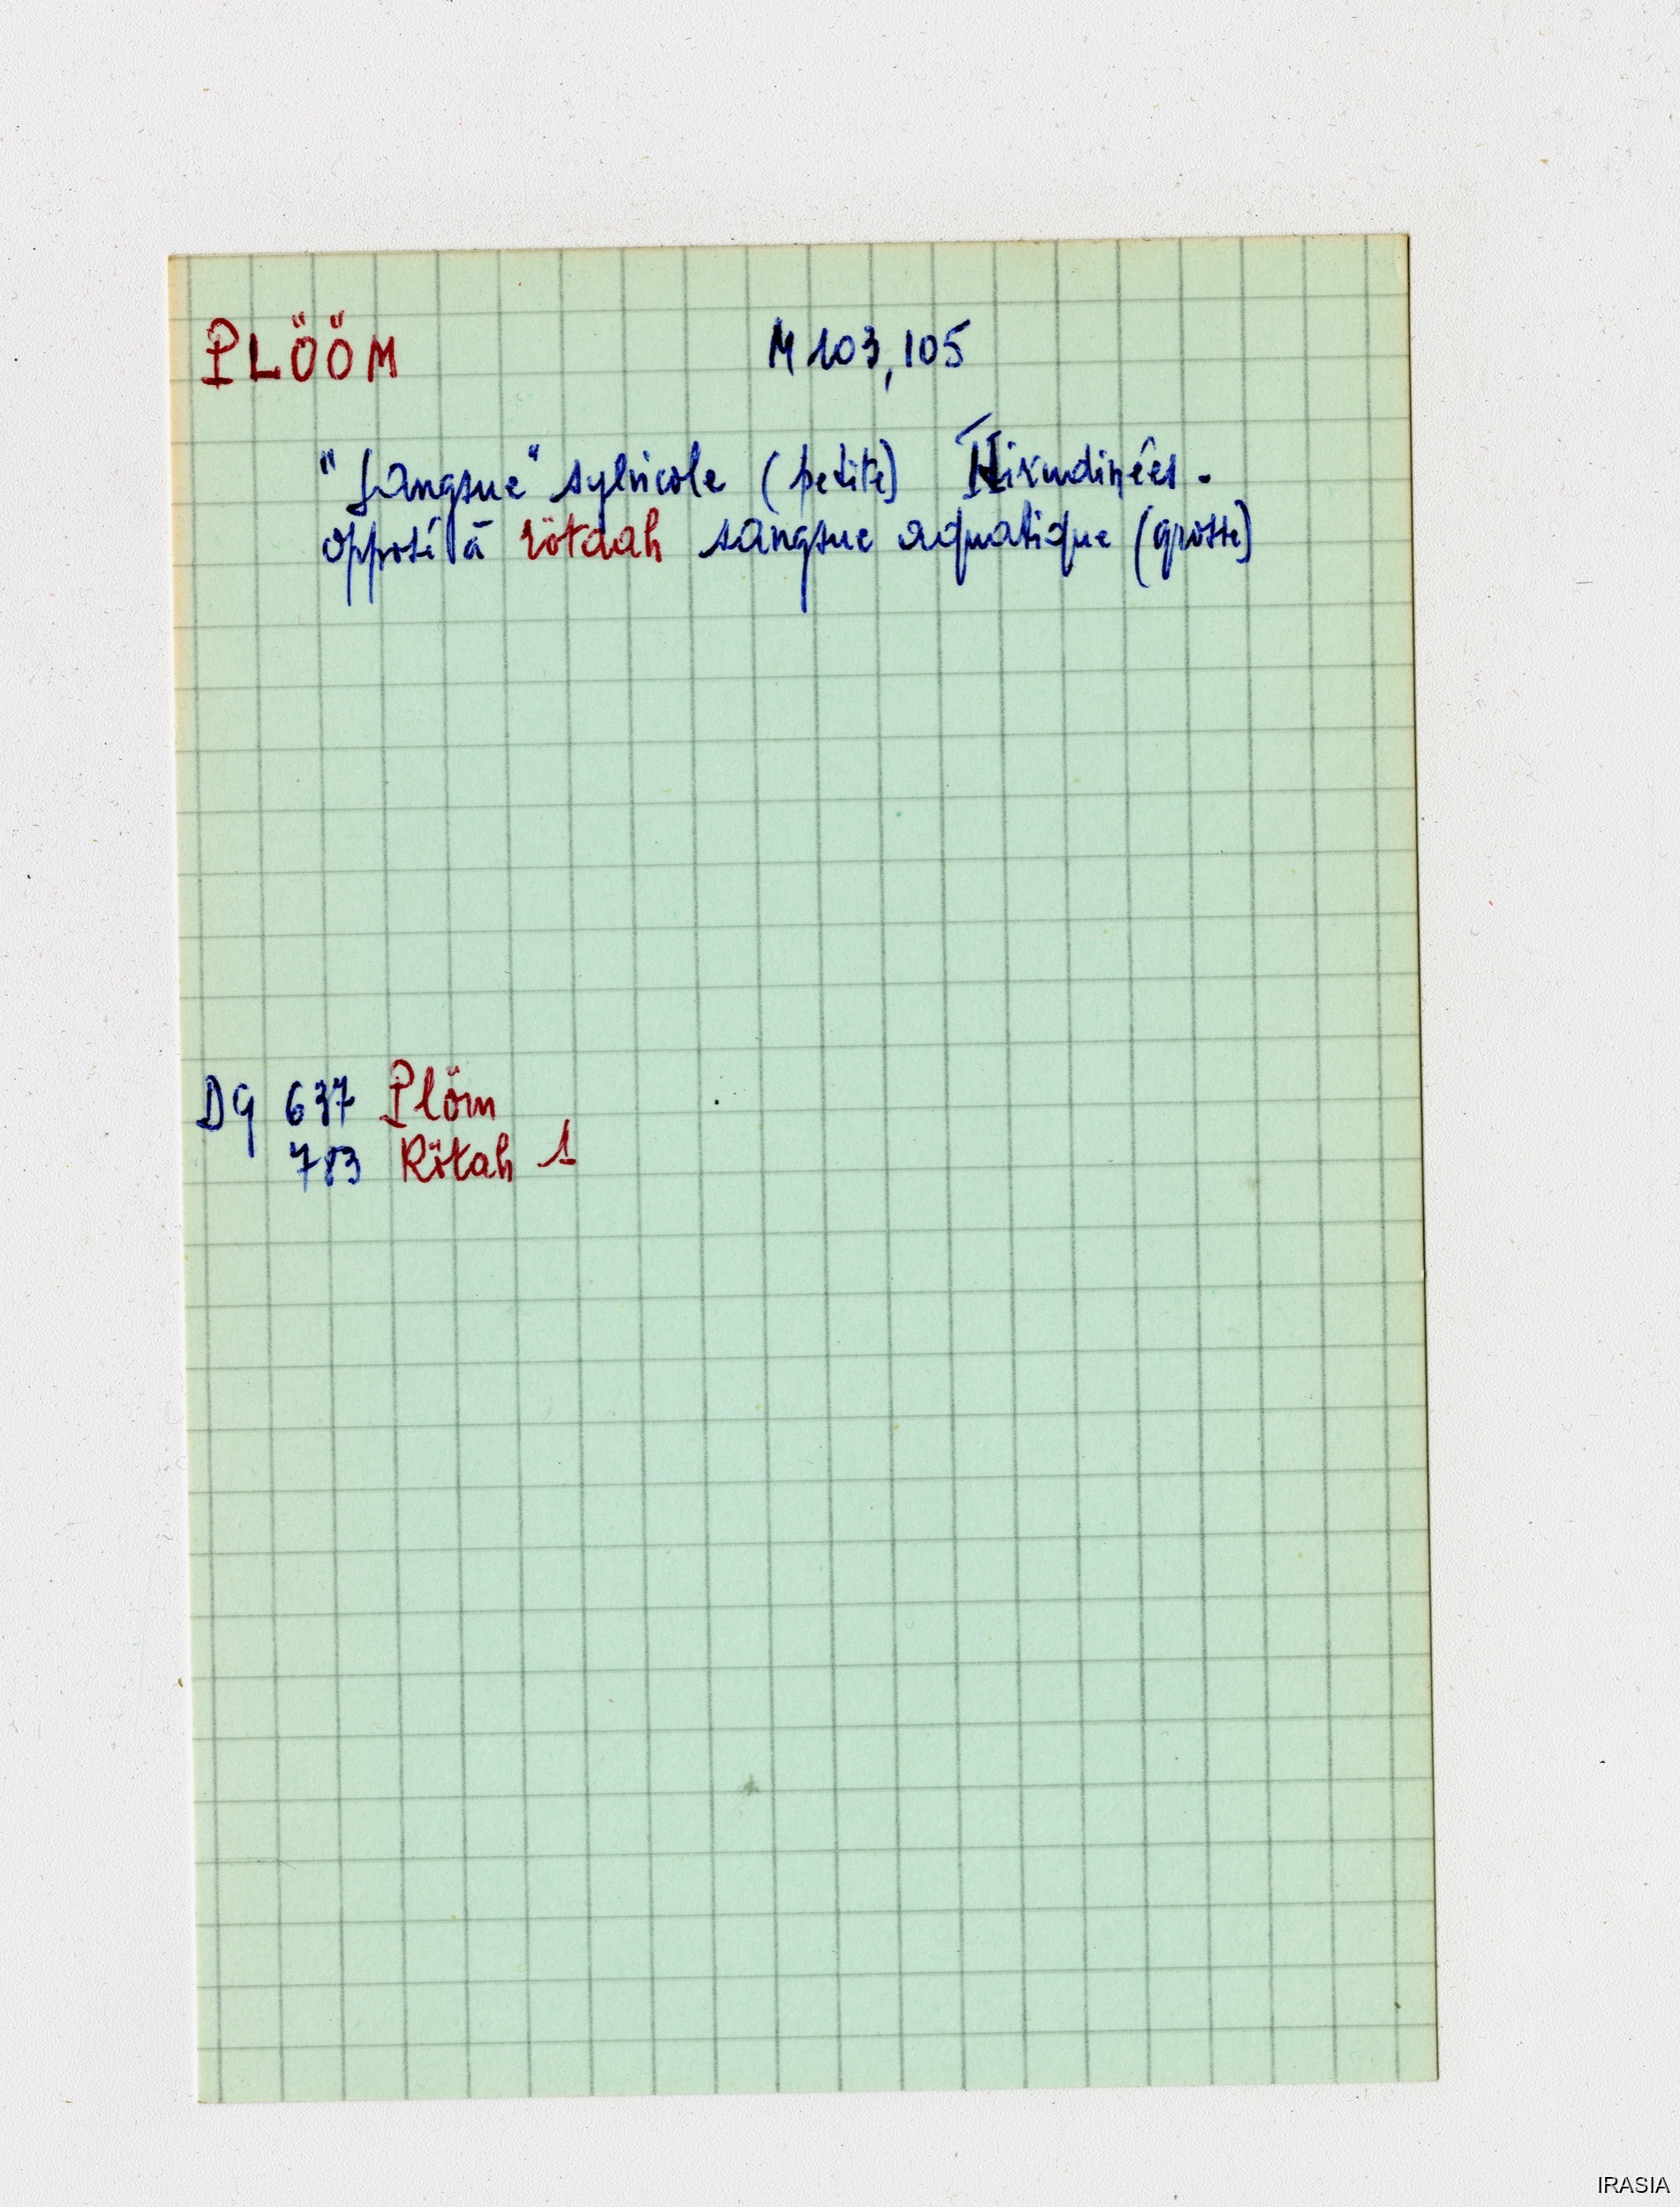 PLÖÖM M 103, 105
"Sangsue" sylvicole (petite) Hirudinées.
opposé à rötaah sangsue aquatique (grosse)
DG 637 Plöm
783 Rötah 1
IRASIA